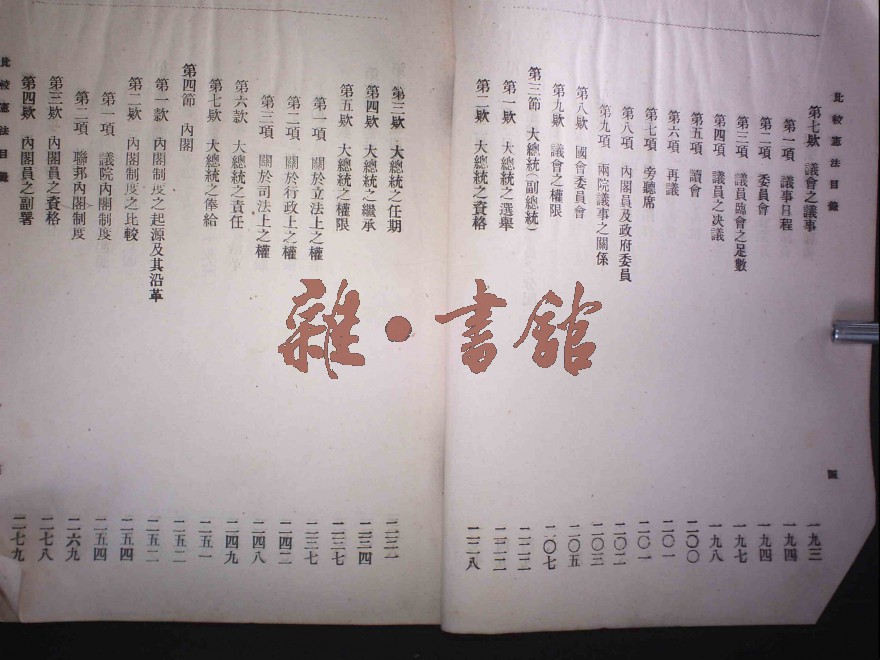 比較憲法目錄
第七欵 議會之議事 一九三
第一項 議事日程 一九四
第二項 委員會 一九四
第三項 議員臨會之足數 一九七
第四項 議員之决議 一九八
第五項 讀會 二〇〇
第六項 再議 二〇一
第七項 旁聽席 二〇一
第八項 內閣員及政府委員 二〇二
第九項 兩院議事之關係 二〇三
第八欵 國會委員會 二〇五
第九欵 議會之權限 二〇七
第三節 大總統(副總統) 二二二
第一欵 大總統之選舉 二二二
第二欵 大總統之資格 二二八
第三欵 大總統之任期 二三一
第四欵 大總統之繼承 二三四
第五欵 大總統之權限 二三七
第一項 關於立法上之權 二三七
第二項 關於行政上之權 二四二
第三項 關於司法上之權 二四八
第六款 大總統之責任 二四九
第七欵 大總統之俸給 二五一
第四節 內閣 二五二
第一款 內閣制度之起源及其沿革 二五二
第二欵 內閣制度之比較 二五四
第一項 議院內閣制度 二五四
第二項 聯邦內閣制度 二六九
第三欵 內閣員之資格 二七八
第四欵 內閣員之副署 二七九
比較憲法目錄
雜·書館